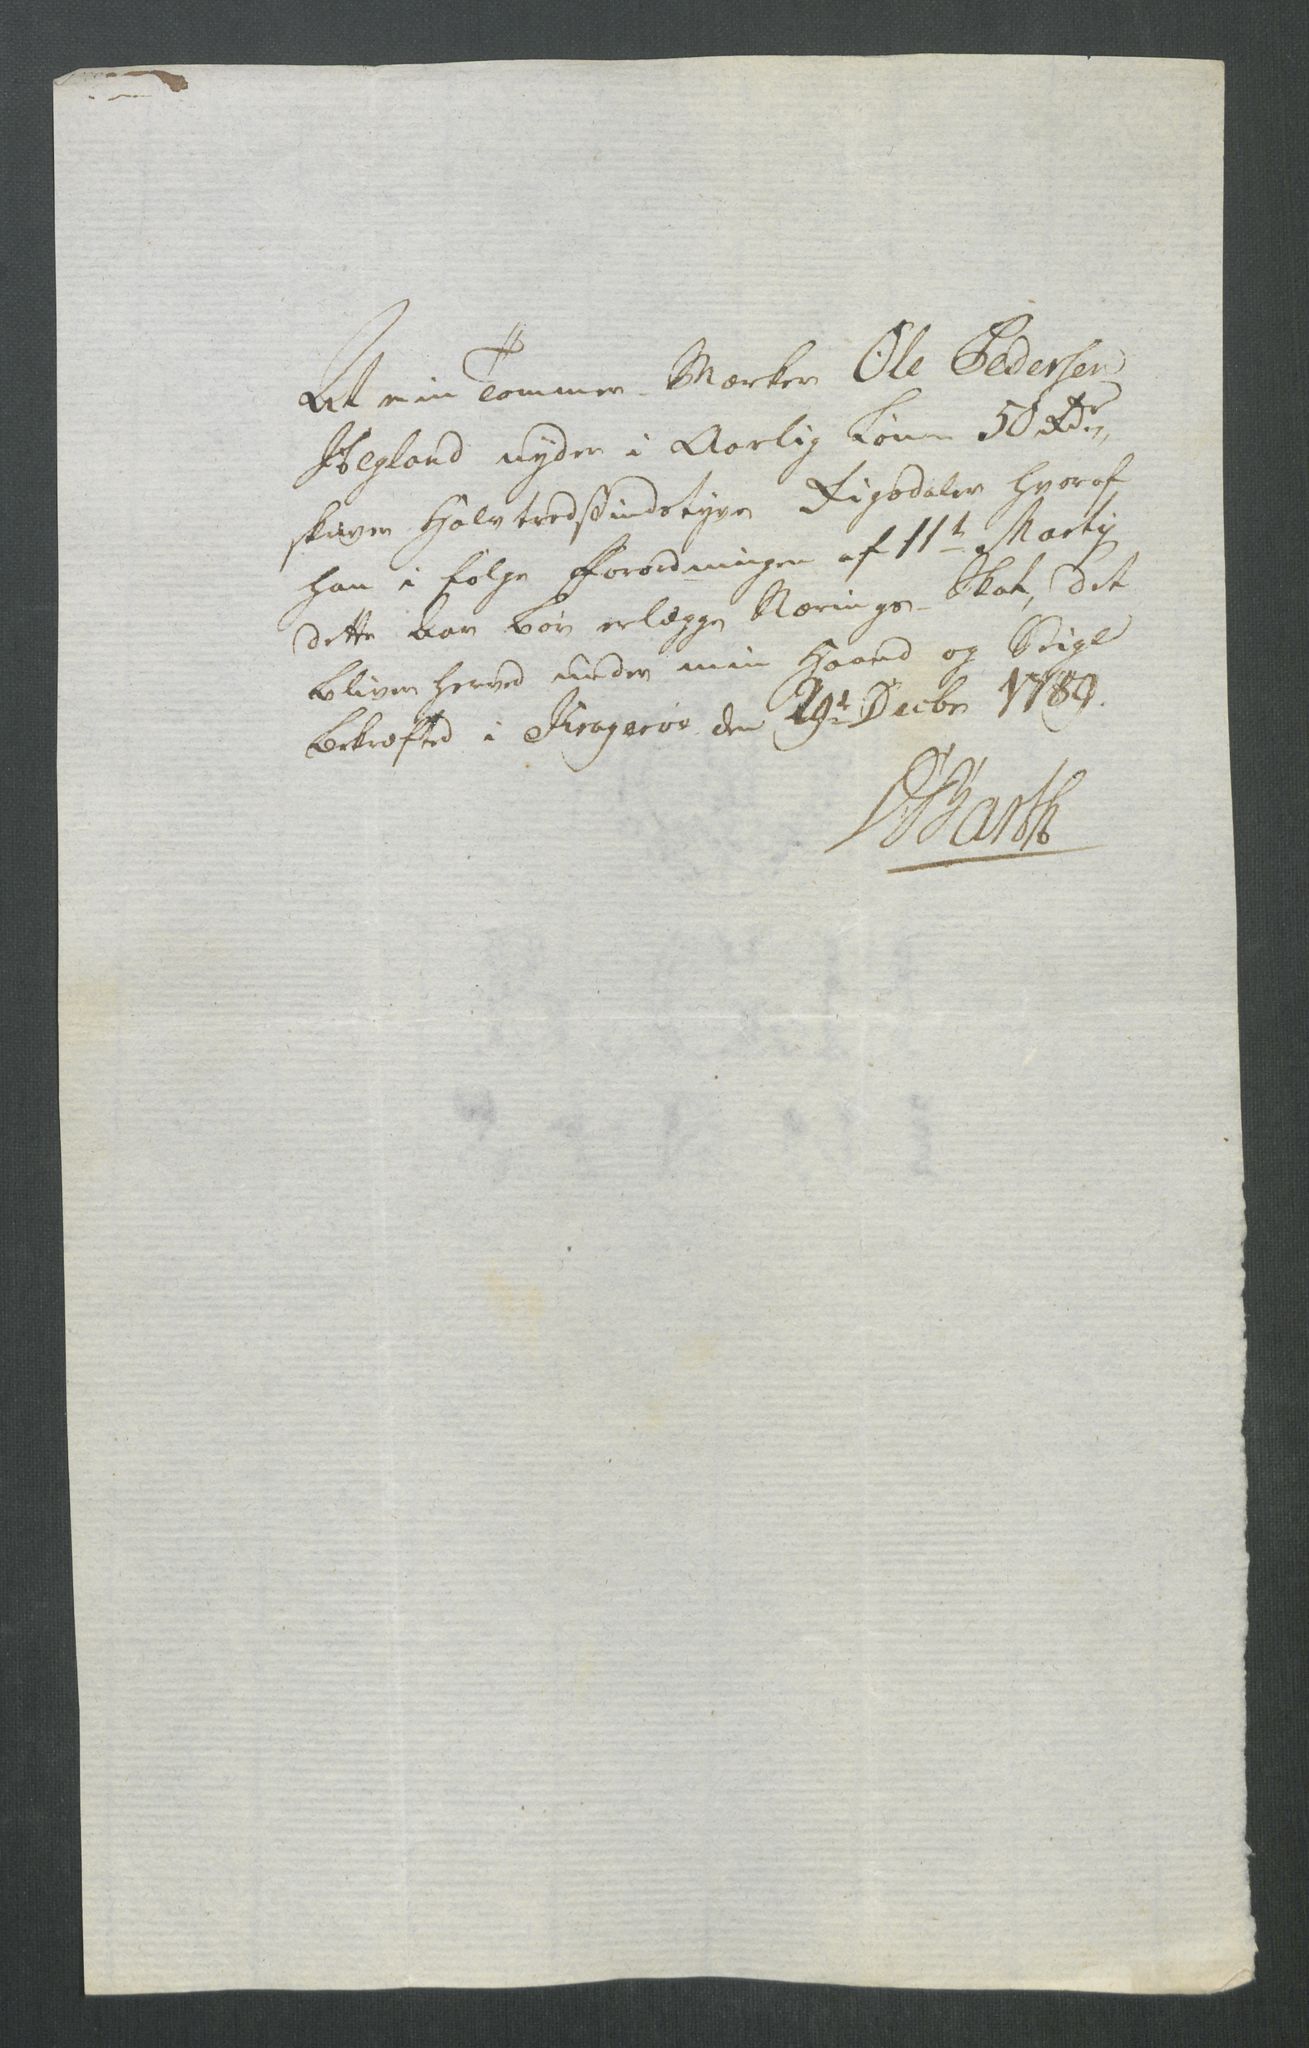 At min Tømmer-Mærker Ole Pedersen
Hegland nyder i Aarlig Lönn 50 Rdr,
skriver Halvtredssindstyve Rigsdaler hvoraf
han i følge Forordningen af 11te Martij
dette Aar bör erlægge Nærings-Skat, det
bliver herved under min Haand og Seigl
bekræfted i Kragerøe den 29de Decbr 1789.
Barth